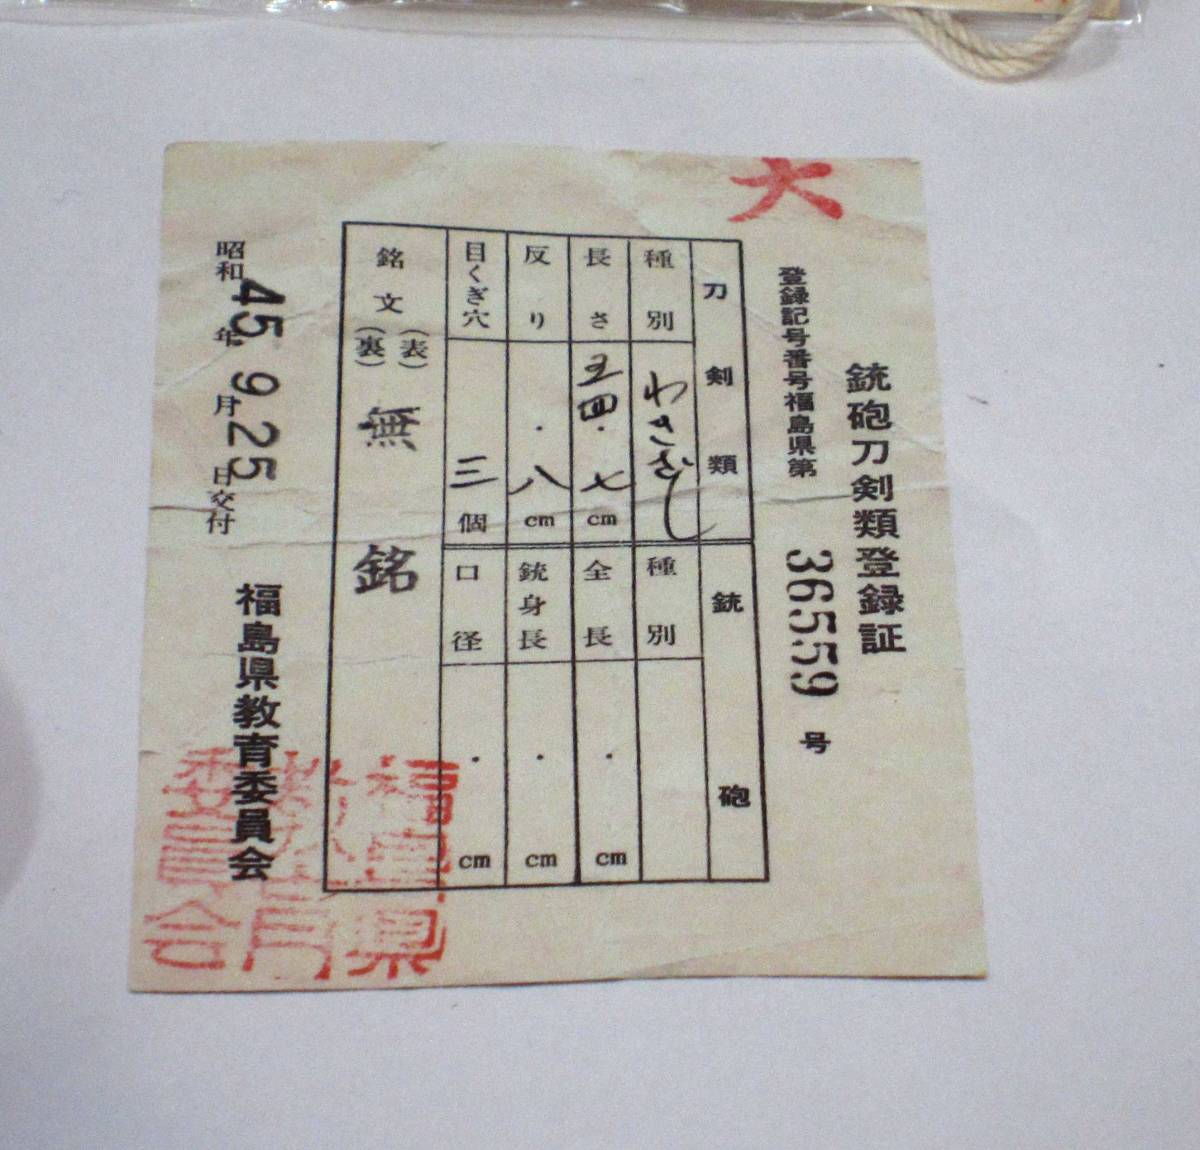 大
銃砲刀剣類登録証
登録記号番号福島県第 36559 号
刀剣類
種別 わきざし
長さ 五四.七cm
反り .八cm
目くぎ穴 三個
銘文(表)(裏) 無銘
銃砲
種別
全長 .cm
銃身長 .cm
口径 .cm
昭和45年9月25日交付
福島県教育委員会
福島県教育委員会